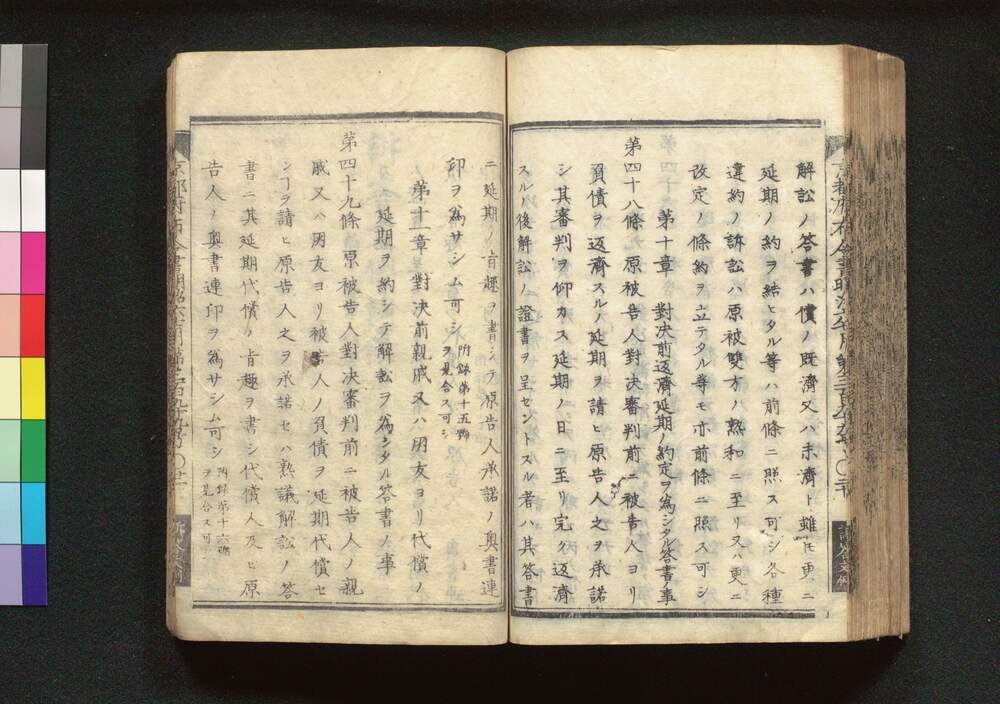 解訟ノ答書ハ償ノ既濟又ハ未濟ト雖𪜈更ニ
延期ノ約ヲ結ヒタル等ハ前條ニ照ス可シ各種
違約ノ訴訟ハ原被雙方ノ熟和ニ至リ又ハ更ニ
改定ノ條約ヲ立テタル等モ亦前條ニ照ス可シ
第十章 對决前返濟延期ノ約定ヲ爲シタル答書ノ事
第四十八條 原被告人對决審判前ニ被告人ヨリ
負債ヲ返濟スルノ延期ヲ請ヒ原告人之ヲ承諾
シ其審判ヲ仰カス延期ノ日ニ至リ完ク返濟
スルノ後解訟ノ證書ヲ呈セントスル者ハ其答書
ニ延期ノ旨趣ヲ書シテ原告人承諾ノ奥書連
印ヲ爲サシム可シ 附録第十五號ヲ見合ス可シ
第十一章 對决前親戚又ハ朋友ヨリ代償ノ
延期ヲ約シテ解訟ヲ爲シタル答書ノ事
第四十九條 原被告人對决審判前ニ被告人ノ親
戚又ハ朋友ヨリ被告人ノ負債ヲ延期代償セ
ンヿヲ請ヒ原告人之ヲ承諾セハ熟議解訟ノ答
書ニ其延期代償ノ旨趣ヲ書シ代償人及ヒ原
告人ノ奥書連印ヲ爲サシム可シ 附録第十六號ヲ見合ス可シ